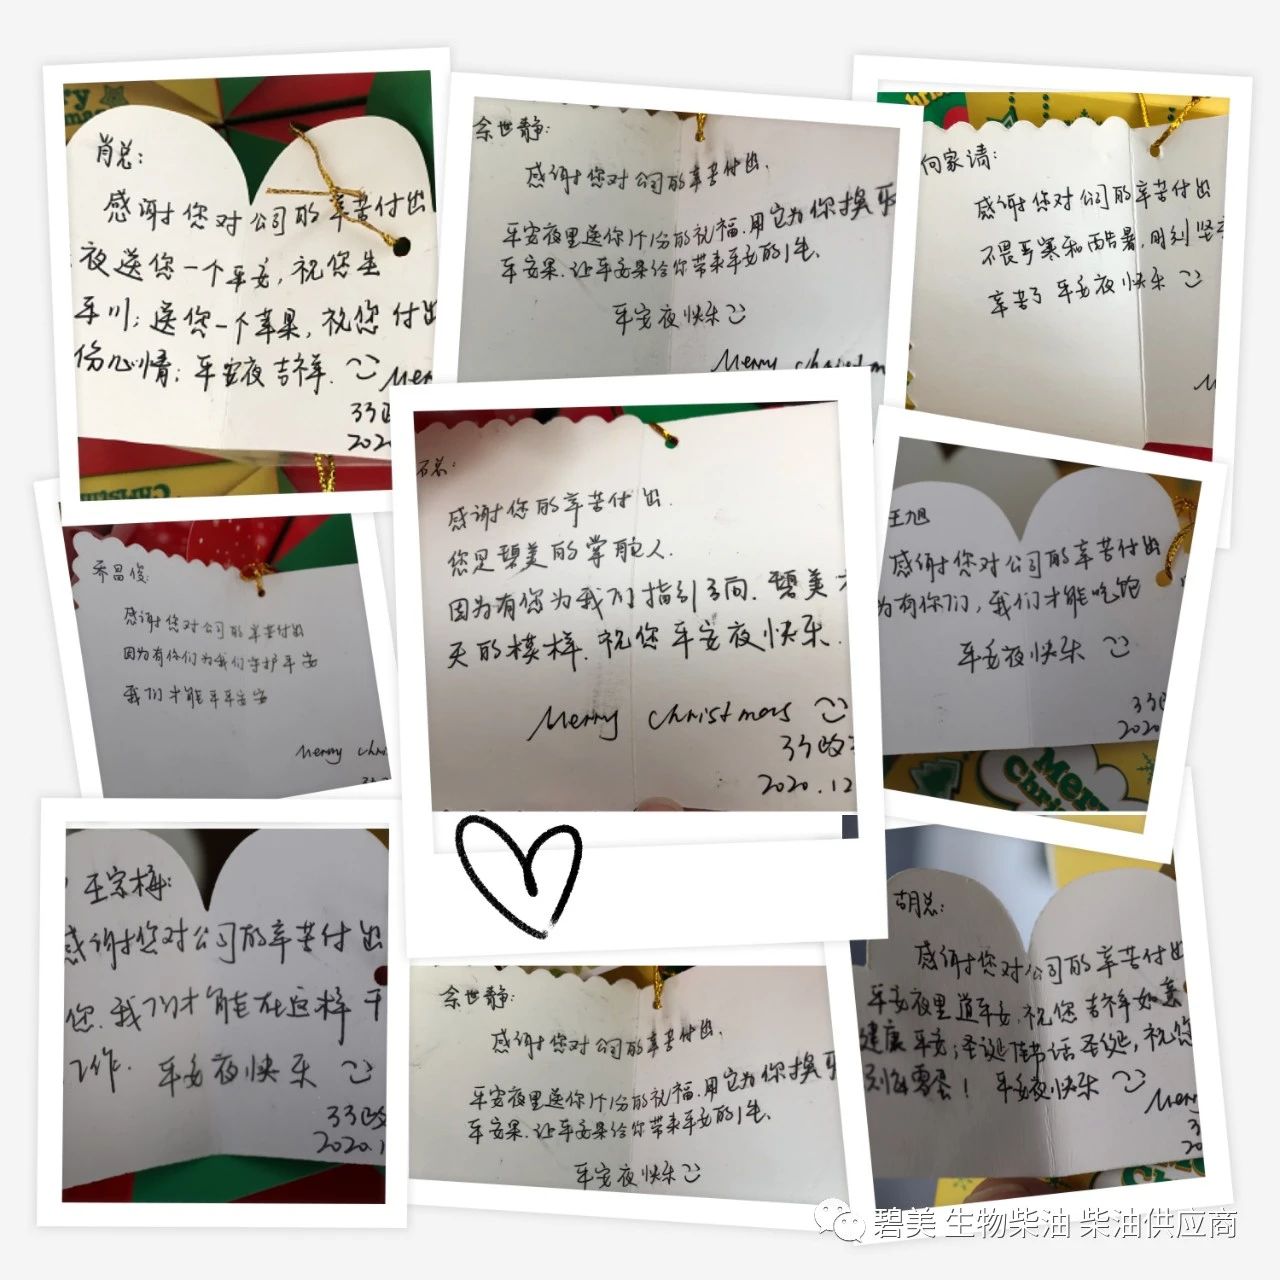 肖总:
感谢您对公司的辛苦付出
夜送您一个平安,祝您生
平川;送您一个苹果,祝您付出
份心情;平安夜吉祥.
Mer
33
202
余世静:
感谢您对公司的辛苦付出.
平安夜里送你1个1份的祝福.用它为你换
平安果.让平安果给你带来平安的1生.
平安夜快乐
Merry christm
向家请:
感谢您对公司的辛苦付出
不畏严寒和酷暑,时刻坚
辛苦了 平安夜快乐
石总:
感谢您的辛苦付出.
您是碧美的掌舵人.
因为有您为我们指引方向.碧美才
天的模样.祝您平安夜快乐.
Merry christmas
33政
2020.12
王旭
感谢您对公司的辛苦付出
为有你们,我们才能吃饱
平安夜快乐
33
2020
Merry
Chri
乔昌俊:
感谢您对公司的辛苦付出
因为有你们为我们守护平安
我们才能平平安安
Merry chri
王宗梅:
感谢您对公司的辛苦付出
您.我们才能在这样干
工作.平安夜快乐
33政
2020.1
余世静:
感谢您对公司的辛苦付出.
平安夜里送你1个1份的祝福.用它为你换
平安果.让平安果给你带来平安的1生.
平安夜快乐
胡总:
感谢您对公司的辛苦付出
平安夜里道平安,祝您吉祥如意
健康平安;圣诞佳节话圣诞,祝您
平安夜快乐
Merr
20
碧美 生物柴油 柴油供应商